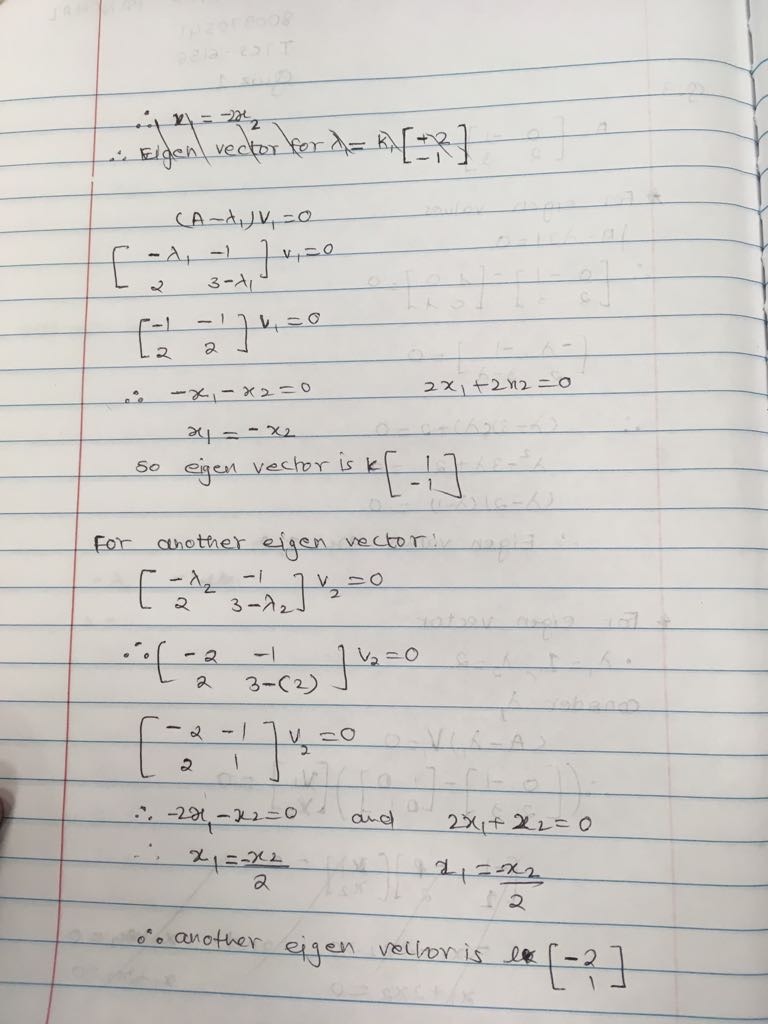 ∴ x₁ = -2x₂
∴ Eigen vector for λ₁ = k₁ [+2
-1]
(A-λ₁)V₁=0
[-λ₁ -1
2 3-λ₁] v₁=0
[-1 -1
2 2] v₁=0
∴ -x₁-x₂=0 2x₁+2x₂=0
x₁ = -x₂
so eigen vector is k [1
-1]
For another eigen vector:
[-λ₂ -1
2 3-λ₂] v₂=0
∴ [-2 -1
2 3-(2)] v₂=0
[-2 -1
2 1] v₂=0
∴ -2x₁-x₂=0 and 2x₁+x₂=0
∴ x₁=-x₂/2 x₁=-x₂/2
∴ another eigen vector is k [-2
1]